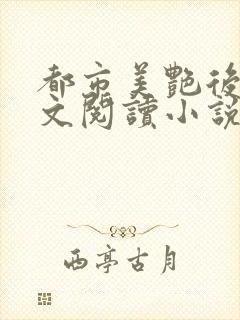 都市美艷後
文閱讀小說
西亭古月